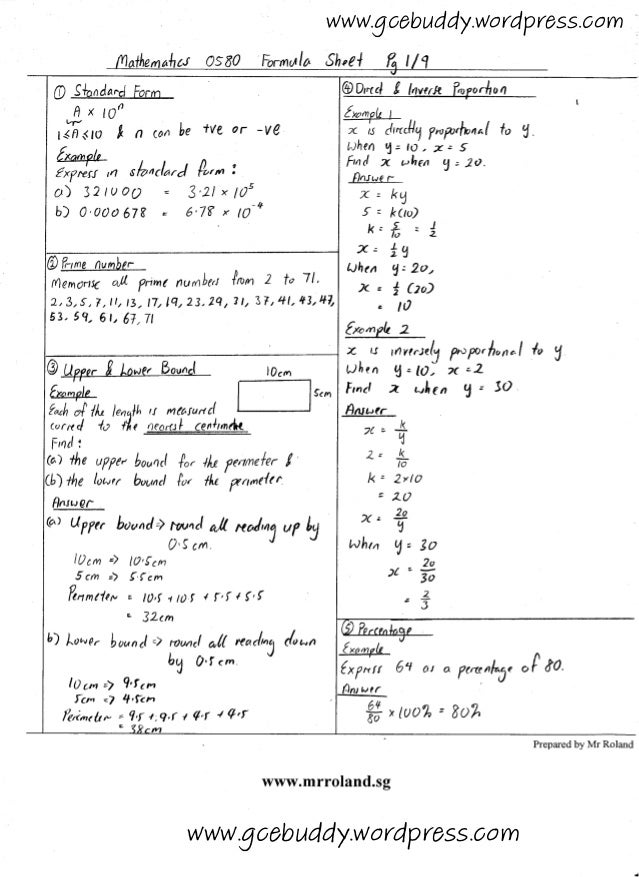 www.gcebuddy.wordpress.com
Mathematics 0580 Formula Sheet Pg 1/9
① Standard Form
A × 10ⁿ
1≤A≤10 & n can be +ve or -ve
Example
Express in standard form :
a) 321000 = 3.21 × 10⁵
b) 0.000678 = 6.78 × 10⁻⁴
② Prime number
Memorise all prime numbers from 2 to 71.
2,3,5,7,11,13,17,19,23,29,31,37,41,43,47,
53,59,61,67,71
③ Upper & Lower Bound
10cm
5cm
Example
Each of the length is measured
correct to the nearest centimetre
Find :
(a) the upper bound for the perimeter &
(b) the lower bound for the perimeter.
Answer
(a) Upper bound => round all reading up by
0.5cm.
10cm => 10.5cm
5cm => 5.5cm
Perimeter = 10.5 + 10.5 + 5.5 + 5.5
= 32cm
b) Lower bound => round all reading down
by 0.5cm.
10cm => 9.5cm
5cm => 4.5cm
Perimeter = 9.5 + 9.5 + 4.5 + 4.5
= 38cm
④ Direct & Inverse Proportion
Example 1
x is directly proportional to y.
When y = 10, x = 5
Find x when y = 20.
Answer
x = ky
5 = k(10)
k = 5/10 = 1/2
x = 1/2 y
When y = 20,
x = 1/2 (20)
= 10
Example 2
x is inversely proportional to y
When y = 10, x = 2
Find x when y = 30
Answer
x = k/y
2 = k/10
k = 2×10
= 20
x = 20/y
When y = 30
x = 20/30
= 2/3
⑤ Percentage
Example
Express 64 as a percentage of 80.
Answer
64/80 × 100% = 80%
Prepared by Mr Roland
www.mrroland.sg
www.gcebuddy.wordpress.com